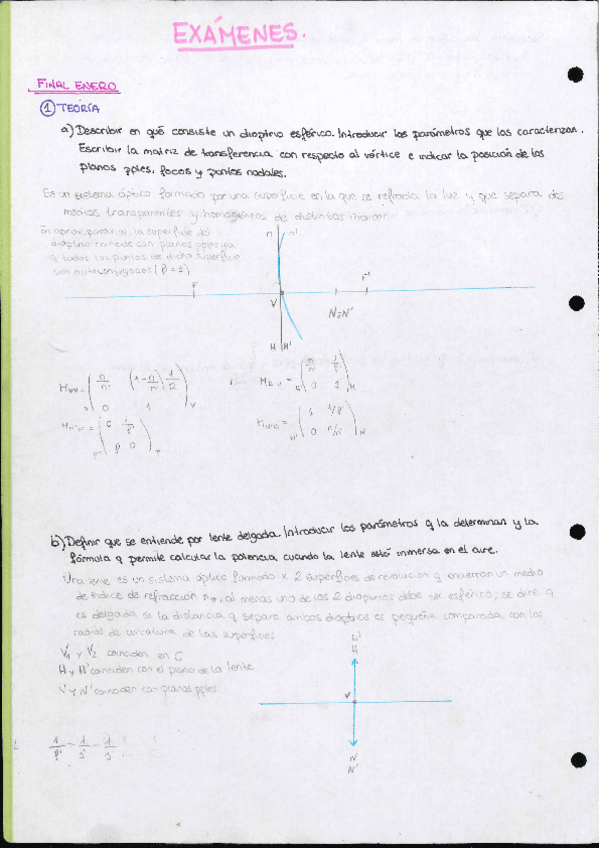 EXÁMENES.
FINAL ENERO
① TEORÍA
a) Describir en qué consiste un dioptrio esférico. Introducir los parámetros que los caracterizan.
Escribir la matriz de transferencia con respecto al vértice e indicar la posición de los
planos pples, focos y puntos nodales.
Es un sistema óptico formado por una superficie en la que se refracta la luz y que separa dos
medios transparentes y homogéneos de distintos
En aprox. paraxial, la superficie del
dioptrio coincide con planos pples ya
q todos los puntos de dicha superficie
son autoconjugados (β = 1)
n n'
F F'
V
N≡N'
H H'
b) Definir que se entiende por lente delgada. Introducir los parámetros q la determinan y la
fórmula q permite calcular la potencia cuando la lente está inmersa en el aire.
Una lente es un sistema óptico formado x 2 superficies de revolución q encierran un medio
de índice de refracción al menos uno de los 2 dioptrios debe ser esférico; se dice q
es delgada si la distancia q separa ambos dioptrios es pequeña comparada con los
radios de curvatura de las superficies
V₁ y V₂ coinciden en C
H y H' coinciden con el plano de la lente
N y N' coinciden con planos pples
H'
H
V
N
N'